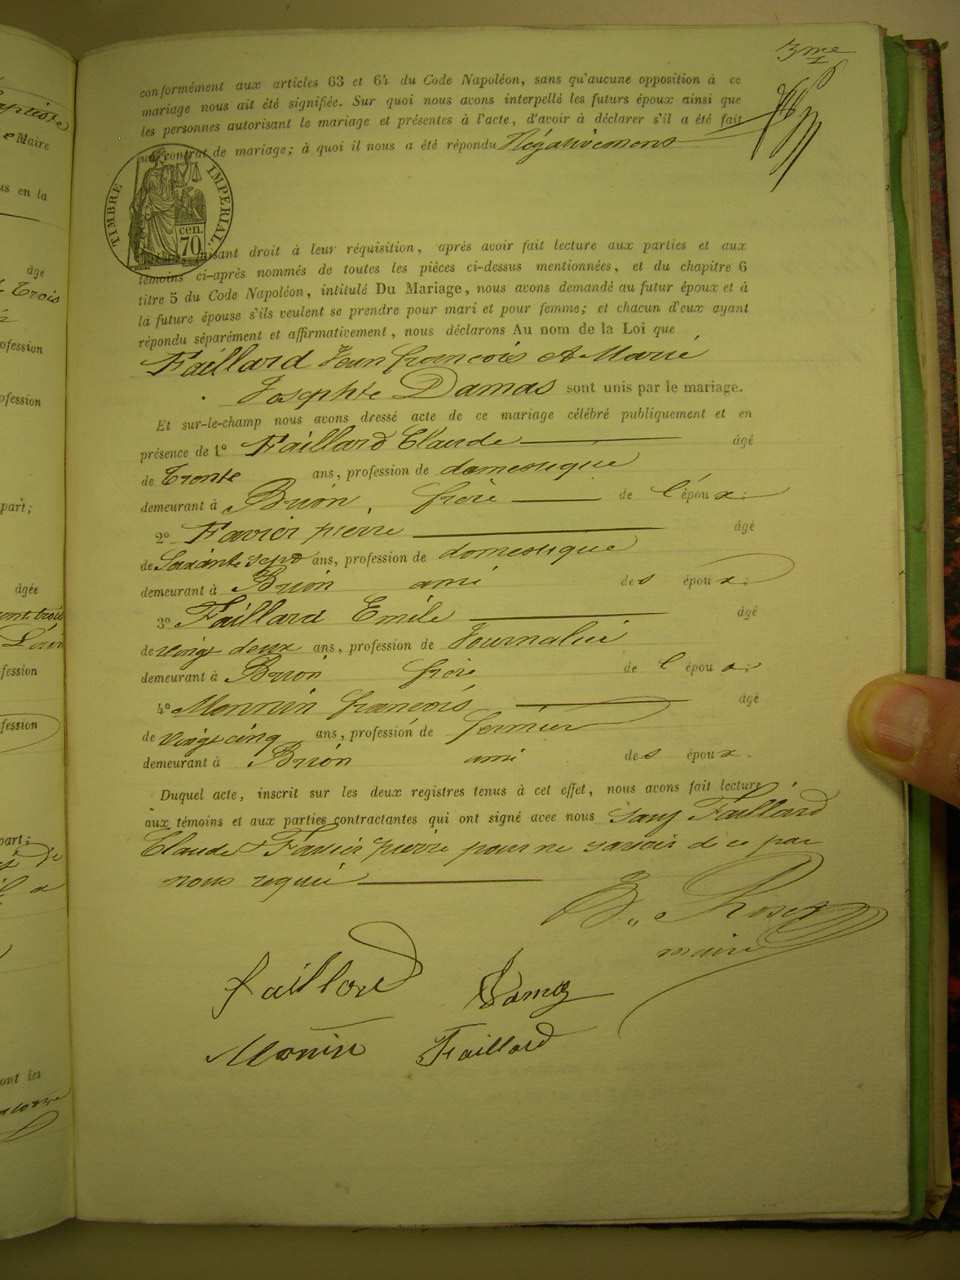 3me
conformément aux articles 63 et 64 du Code Napoléon, sans qu'aucune opposition à ce
mariage nous ait été signifiée. Sur quoi nous avons interpellé les futurs époux ainsi que
les personnes autorisant le mariage et présentes à l'acte, d'avoir à déclarer s'il a été fait
contrat de mariage; à quoi il nous a été répondu Négativement
TIMBRE IMPERIAL
cen.
70
droit à leur réquisition, après avoir fait lecture aux parties et aux
témoins ci-après nommés de toutes les pièces ci-dessus mentionnées, et du chapitre 6
titre 5 du Code Napoléon, intitulé Du Mariage, nous avons demandé au futur époux et à
la future épouse s'ils veulent se prendre pour mari et pour femme; et chacun d'eux ayant
répondu séparément et affirmativement, nous déclarons Au nom de la Loi que
Faillard Jean françois et Marie
Josephte Damas sont unis par le mariage.
Et sur-le-champ nous avons dressé acte de ce mariage célébré publiquement et en
présence de 1º Faillard Claude âgé
de trente ans, profession de domestique
demeurant à Brion, frère de l'époux.
2º Favier pierre âgé
de Soixante sept ans, profession de domestique
demeurant à Brion ami des époux.
3º Faillard Emile âgé
de vingt deux ans, profession de Journalier
demeurant à Brion frère de l'époux.
4º Monnin françois âgé
de vingt cinq ans, profession de fermier
demeurant à Brion ami des époux.
Duquel acte, inscrit sur les deux registres tenus à cet effet, nous avons fait lecture
aux témoins et aux parties contractantes qui ont signé avec nous sauf Faillard
Claude & Favier pierre pour ne savoir de ce par
nous requis
maire
faillard Damas
Monin Faillard